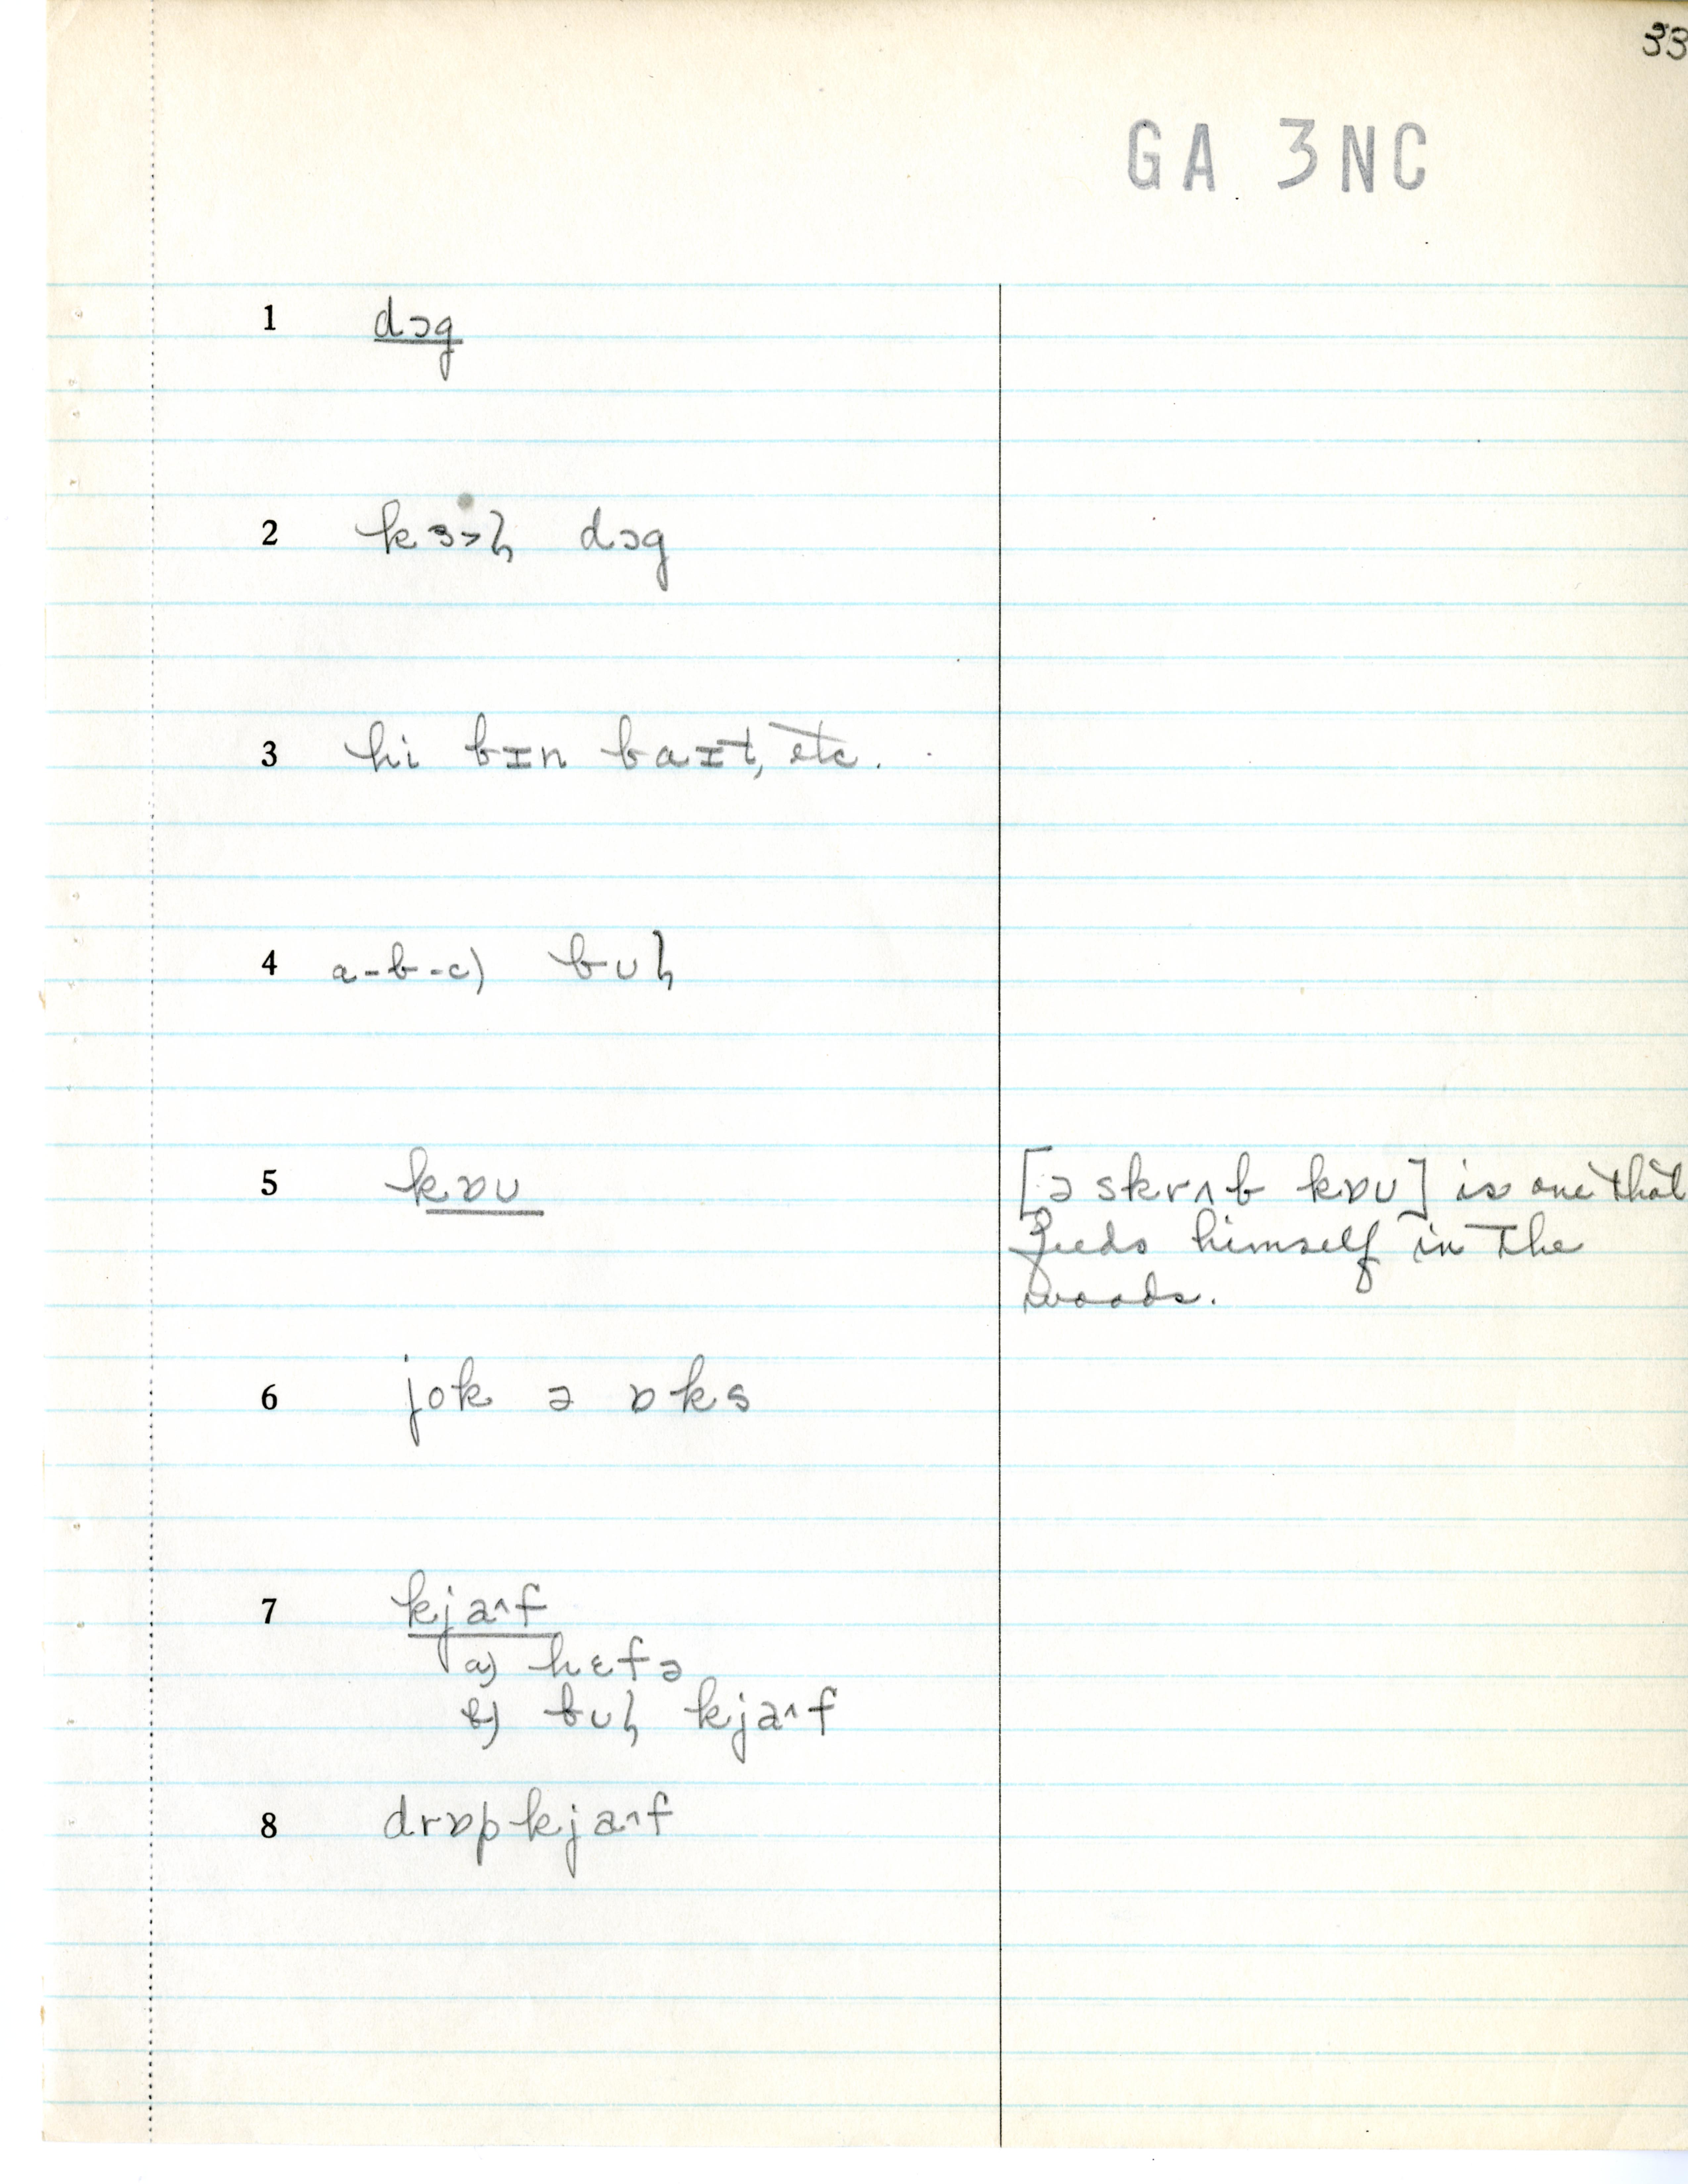 33
GA 3NC
1 dɔg
2 kɜ˃ɦ dɔg
3 hi bɪn baɪt, etc.
4 a-b-c) bʊɦ
5 kɒʊ [ə skrʌb kɒʊ] is one that
feeds himself in the
woods.
6 jok ə ɒks
7 kja˄f
a) hɛfə
b) bʊɦ kja˄f
8 drɒp kja˄f